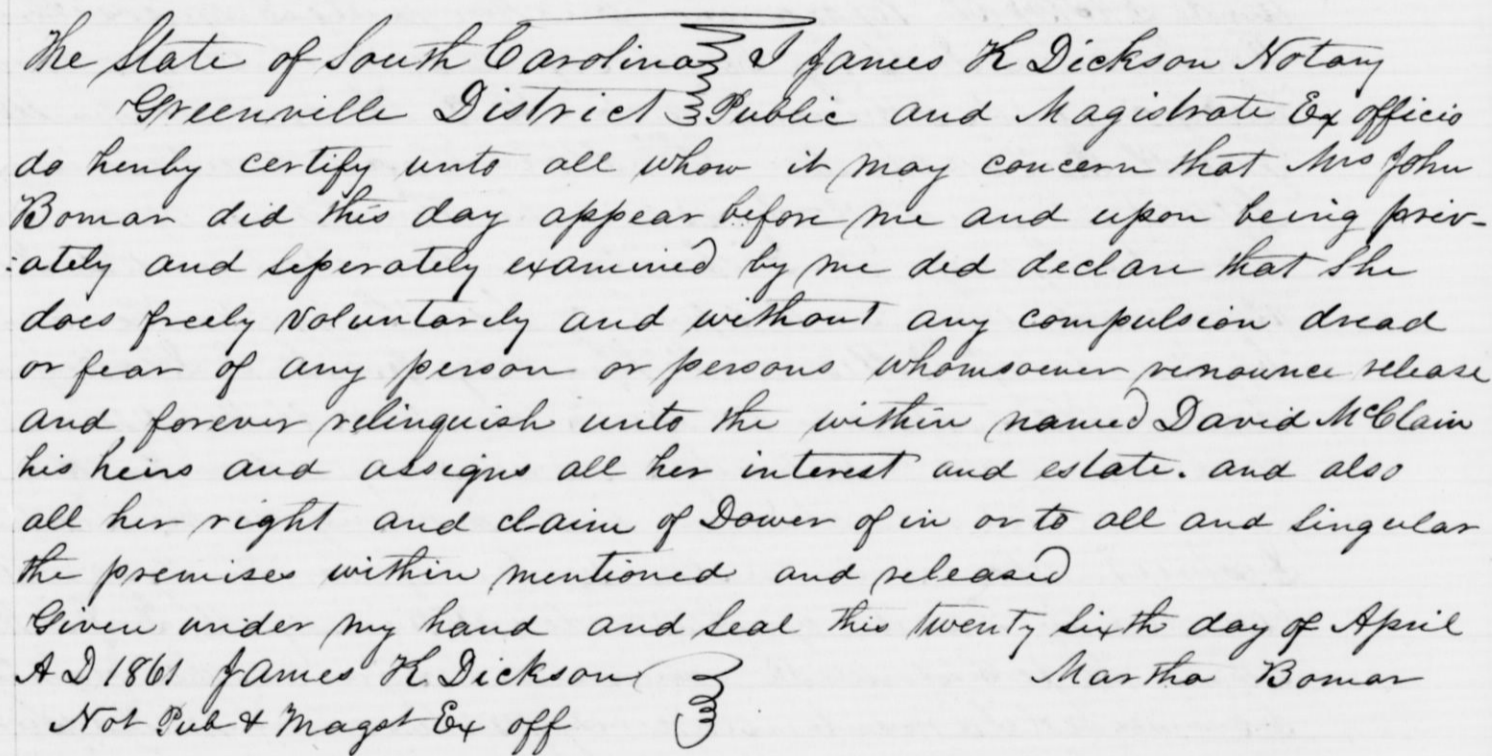 The State of South Carolina } I James K Dickson Notary
Greenville District } Public and Magistrate Ex officio
do hereby certify unto all whom it may concern that Mrs John
Bomar did this day appear before me and upon being priv-
:ately and seperately examined by me did declare that she
does freely voluntarily and without any compulsion dread
or fear of any person or persons whomsoever renounce release
and forever relinquish unto the within named David McClain
his heirs and assigns all her interest and estate. and also
all her right and claim of Dower of in or to all and singular
the premises within mentioned and released
Given under my hand and seal this twenty sixth day of April
A D 1861 James K. Dickson } Martha Bomar
Not Pub & Magst Ex off